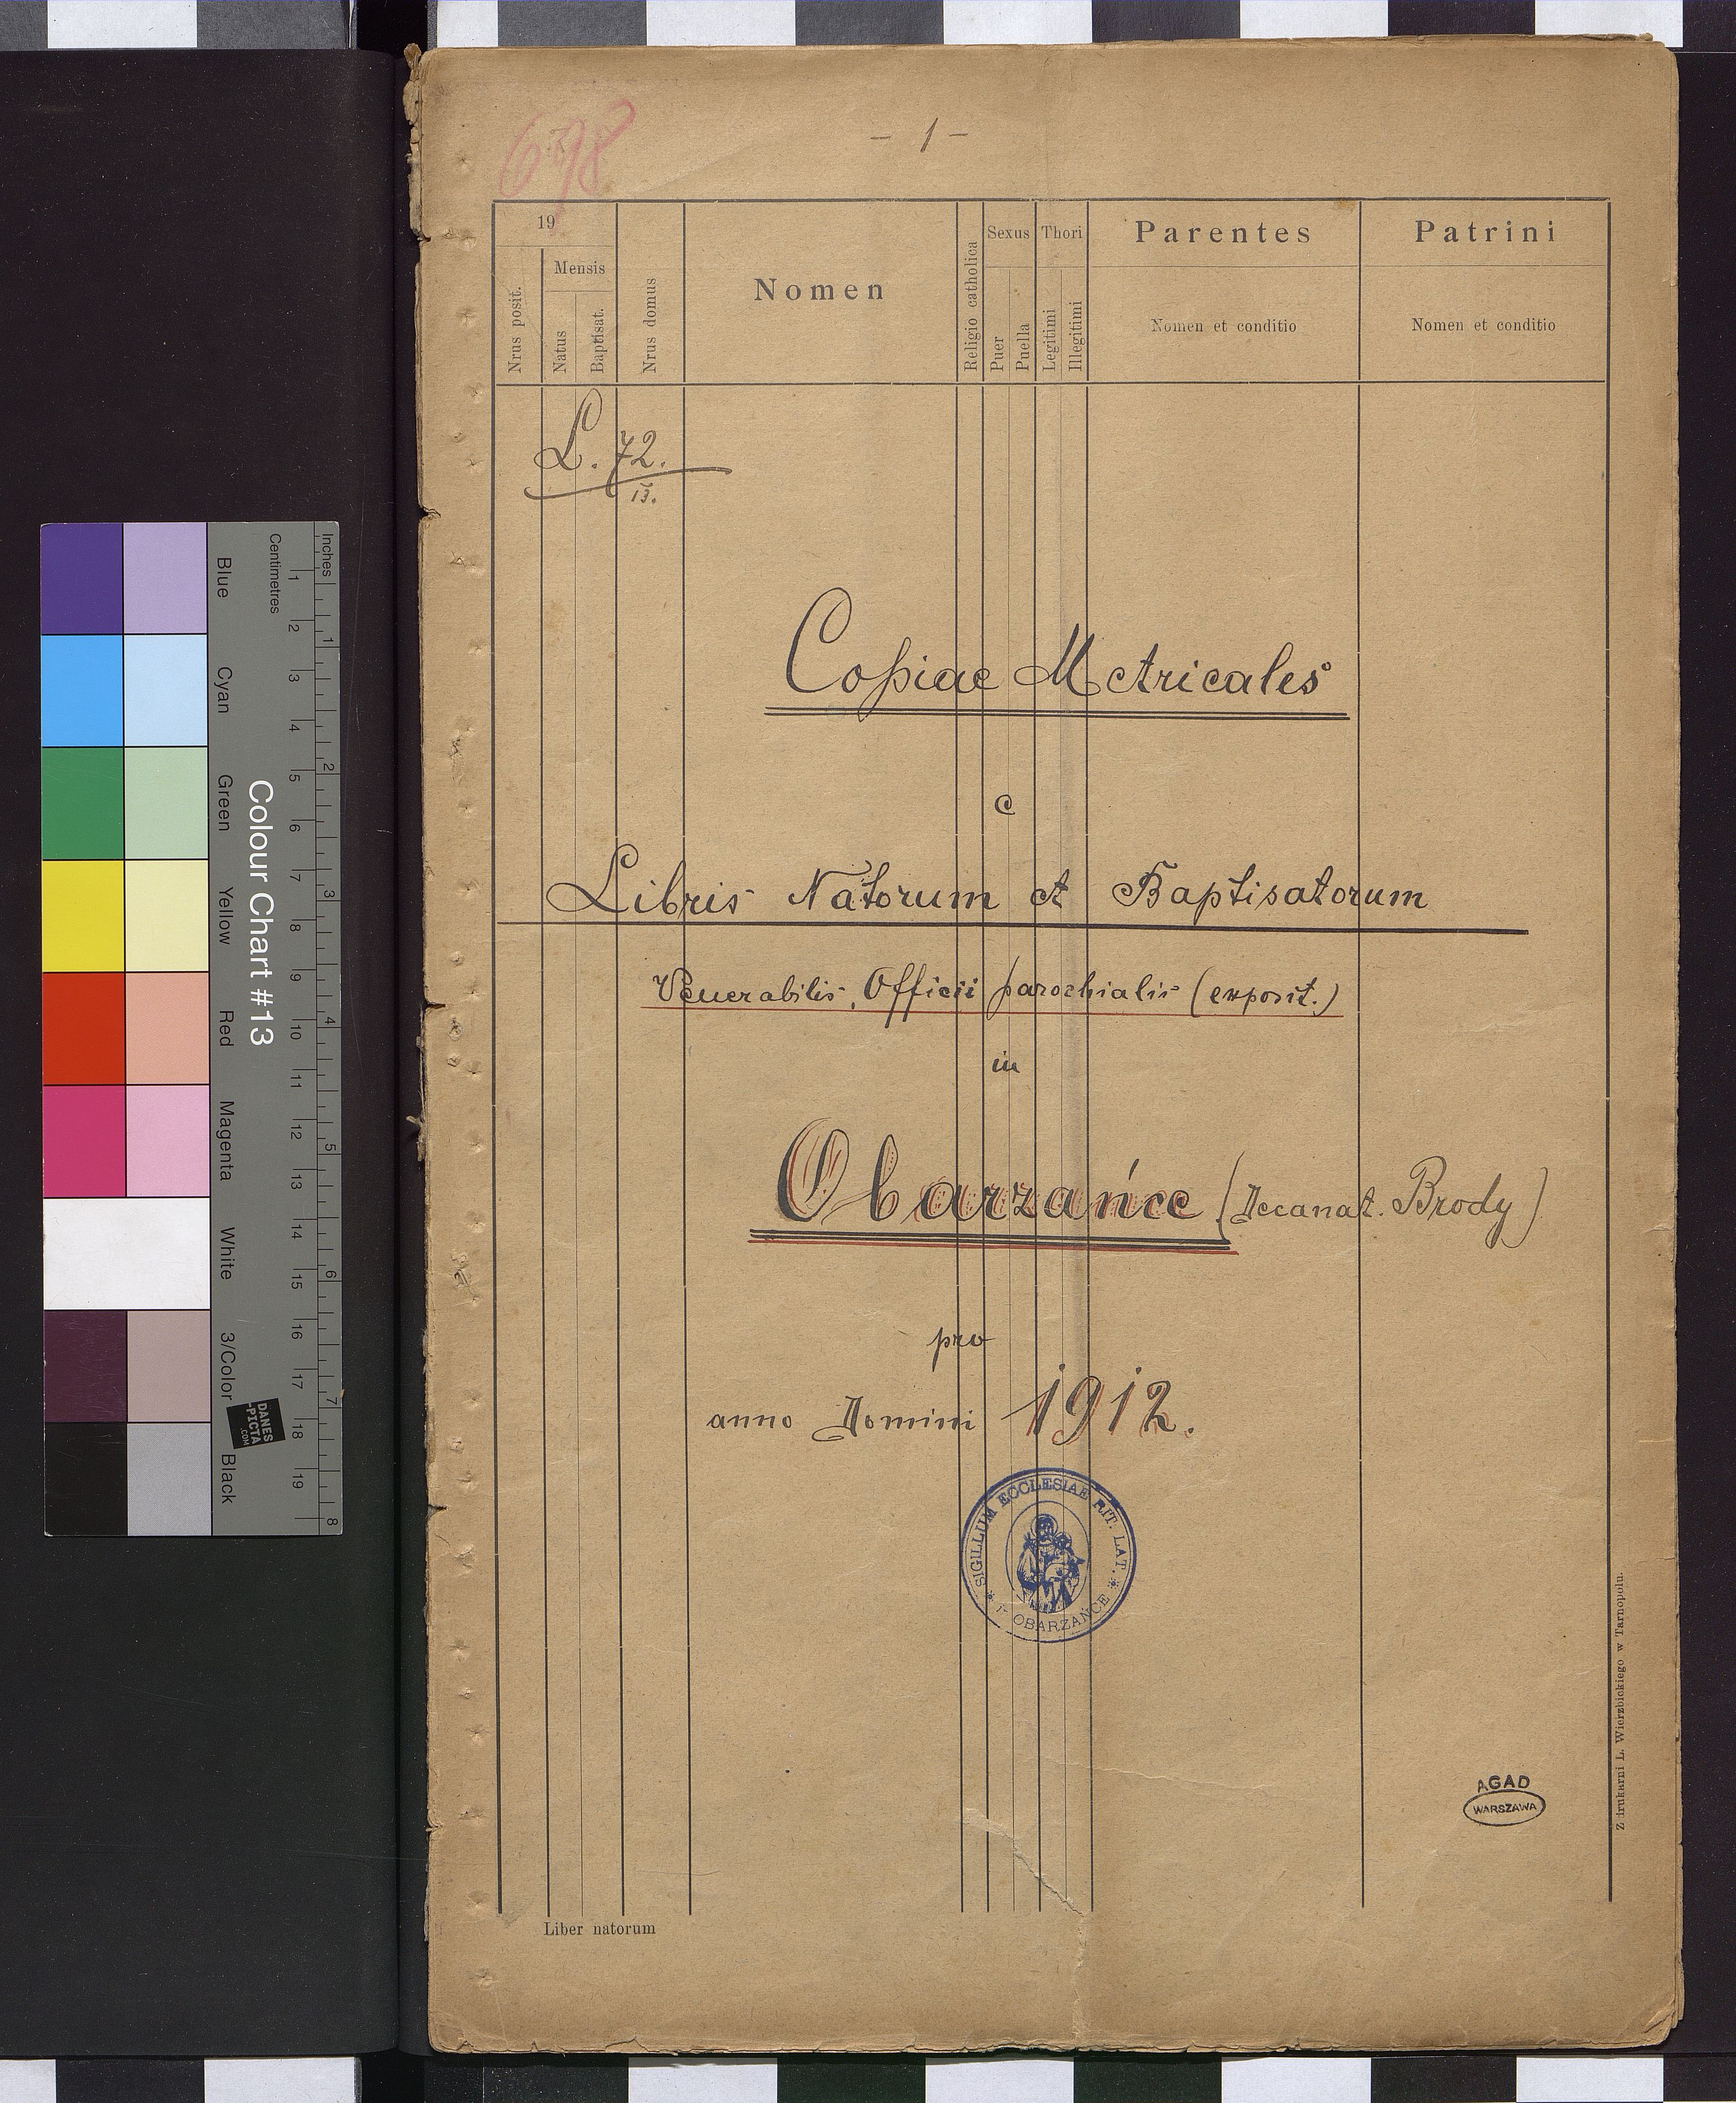 698
- 1 -
19
Mensis
Nrus posit.
Natus
Baptisat.
Nrus domus
Nomen
Religio catholica
Sexus
Puer
Puella
Thori
Legitimi
Illegitimi
Parentes
Nomen et conditio
Patrini
Nomen et conditio
L. 72.
13.
Copiae Metricales
e
Libris Natorum et Baptisatorum
Venerabilis Officii parochialis (exposit.)
in
Obarzańce (Decanat. Brody)
pro
anno Domini 1912.
SIGILLUM ECCLESIAE RIT. LAT.
OBARZAŃCE
AGAD
WARSZAWA
Z drukarni L. Wierzbickiego w Tarnopolu.
Liber natorum
Inches
1 2 3 4 5 6 7 8
Centimetres
1 2 3 4 5 6 7 8 9 10 11 12 13 14 15 16 17 18 19
Colour Chart #13
Blue
Cyan
Green
Yellow
Red
Magenta
White
3/Color
Black
DANES
-PICTA
.COM